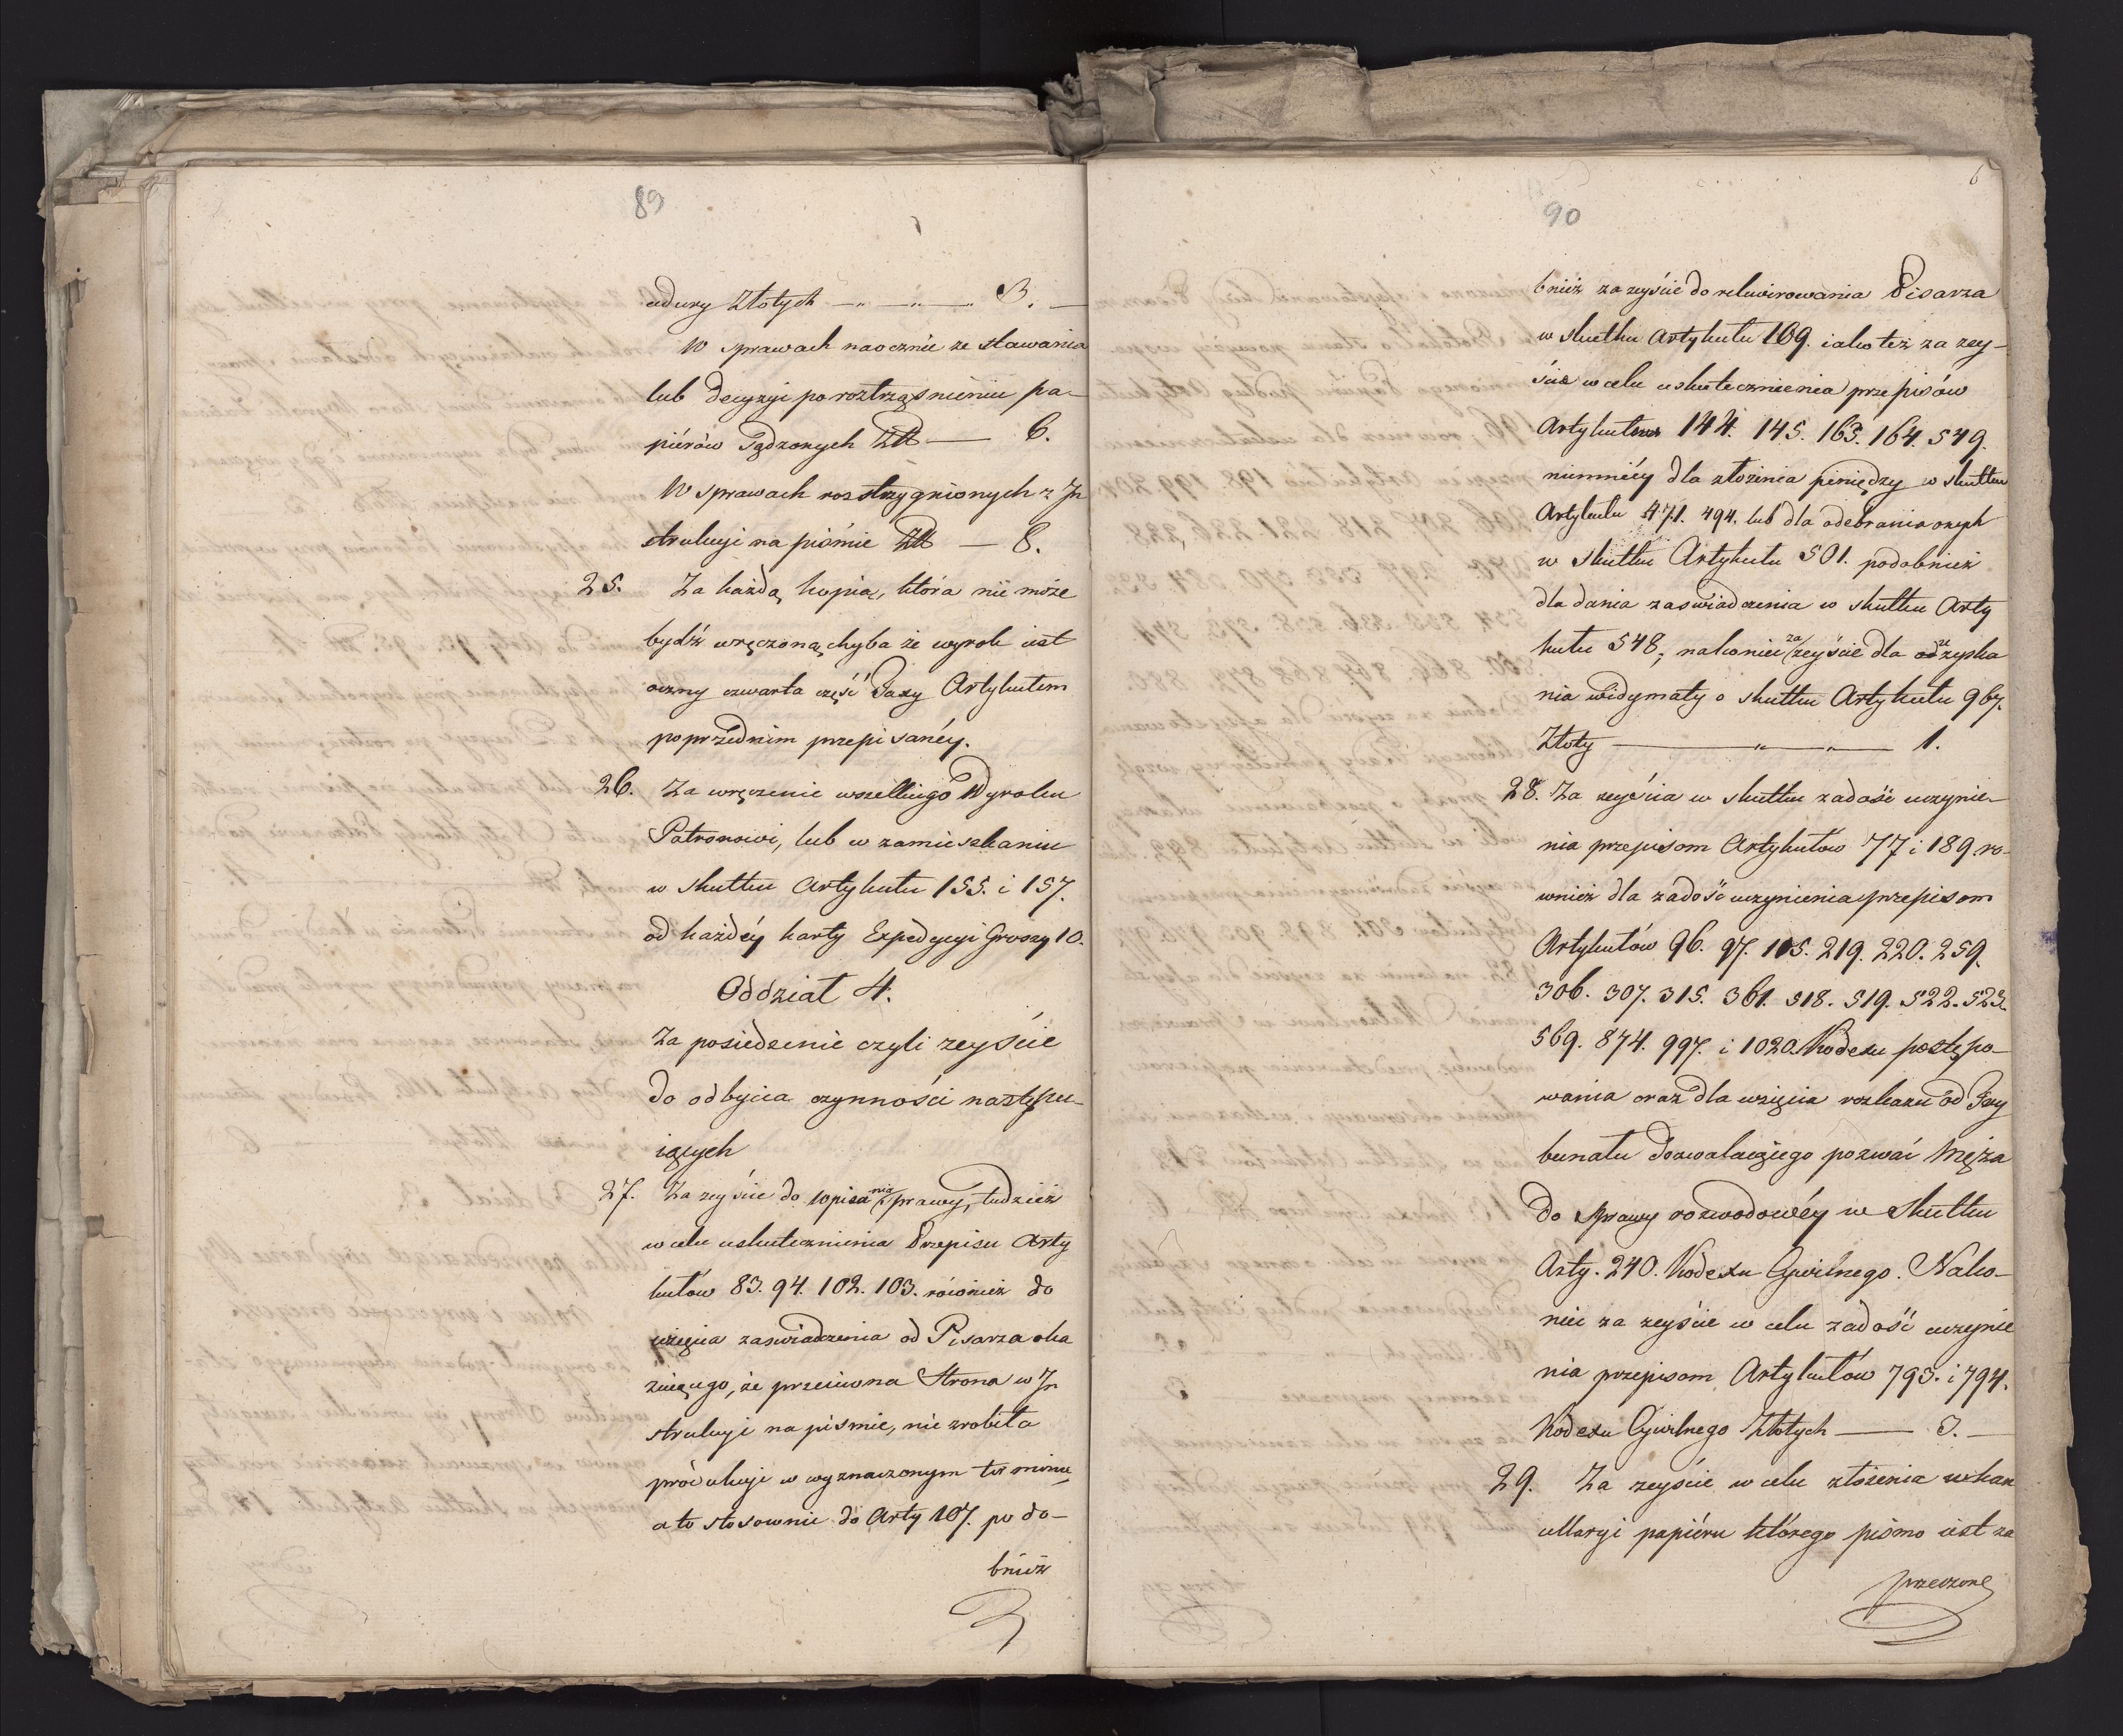 89
cedury Złotych — „ — „ — 3. —
W sprawach naocznie ze stawania
lub decyzyi po roztrząśnieniu pa-
piérów sądzonych Złł — 6.
W sprawach rosstrzygnionych z In
strukcyi na piśmie Złł — 8.
25. Za każdą kopią, która nie może
bydź wręczoną, chyba że wyrok iest
oczny czwarta część Taxy Artykułem
poprzednim przepisanéy.
26. Za wręczenie wszelkiego Wyroku
Patronowi, lub w zamieszkaniu
w skutku Artykułu 155. i 157.
od każdéy karty Expedycyi Groszy 10.
Oddział 4.
Za posiedzenie czyli zeyście
do odbycia czynności następu-
iących
27. Za zeyście do wpisania sprawy, tudzież
w celu uskutecznienia Przepisu Arty
kułów 83. 94. 102. 103. róiwnież do
wzięcia zaswiadczenia od Pisarza oka
zuiącego, że przeciwna Strona w In
strukcyi na pismie, nie zrobiła
produkcyi w wyznaczonym terminie
a to stosownie do Arty 107. podo-
bnież
90
bnież za zeyście do rekwirowania Pisarza
w skutku Artykułu 109. iako też za zey-
ście w celu uskutecznienia przepisów
Artykułów 144. 145. 163. 164. 549.
niemniéy dla złożenia pieniędzy w skutku
Artykułu 471. 494. lub dla odebrania onych
w skutku Artykułu 501. podobnież
dla dania zaswiadczenia w skutku Arty
kułu 548; nakoniec za zeyście dla uzyska
nia widymaty o skutku Artykułu 967.
Złoty — „ — „ — 1.
28. Za zeyścia w skutku zadość uczynie-
nia przepisom Artykułów 77 i 189. ro-
wnież dla zadość uczynienia przepisom
Artykułów 96. 97. 105. 219. 220. 259.
306. 307. 315. 361. 518. 519. 522. 523.
569. 874. 997. i 1020. Kodexu postępo-
wania oraz dla wzięcia rozkazu od Try
bunału dozwalaiącego pozwać Męża
do sprawy rozwodowéy w skutku
Arty. 240. Kodexu Cywilnego. Nako-
niec za zeyście w celu zadość uczynie
nia przepisom Artykułów 793. i 794.
Kodexu Cywilnego Złotych — 3. —
29. Za zeyście w celu złożenia w kan
cellaryi papiéru którego pismo iest za
przeczone